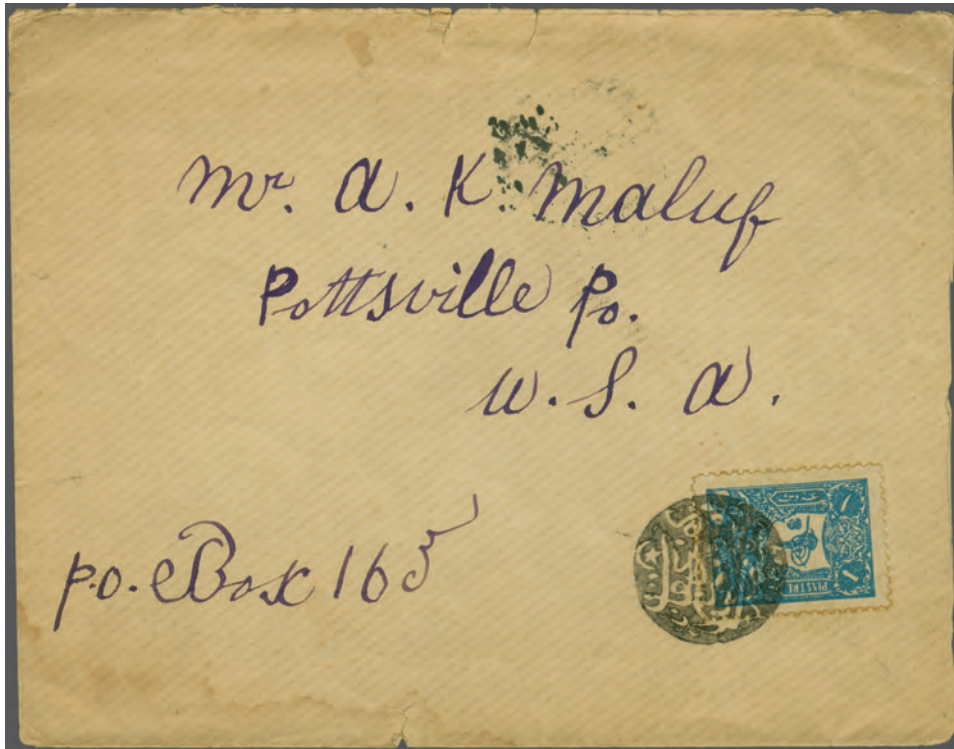 Mr. A. K. Maluf
Pottsville Pa.
U. S. A.
P.O. Box 165
1 1
PIASTRE